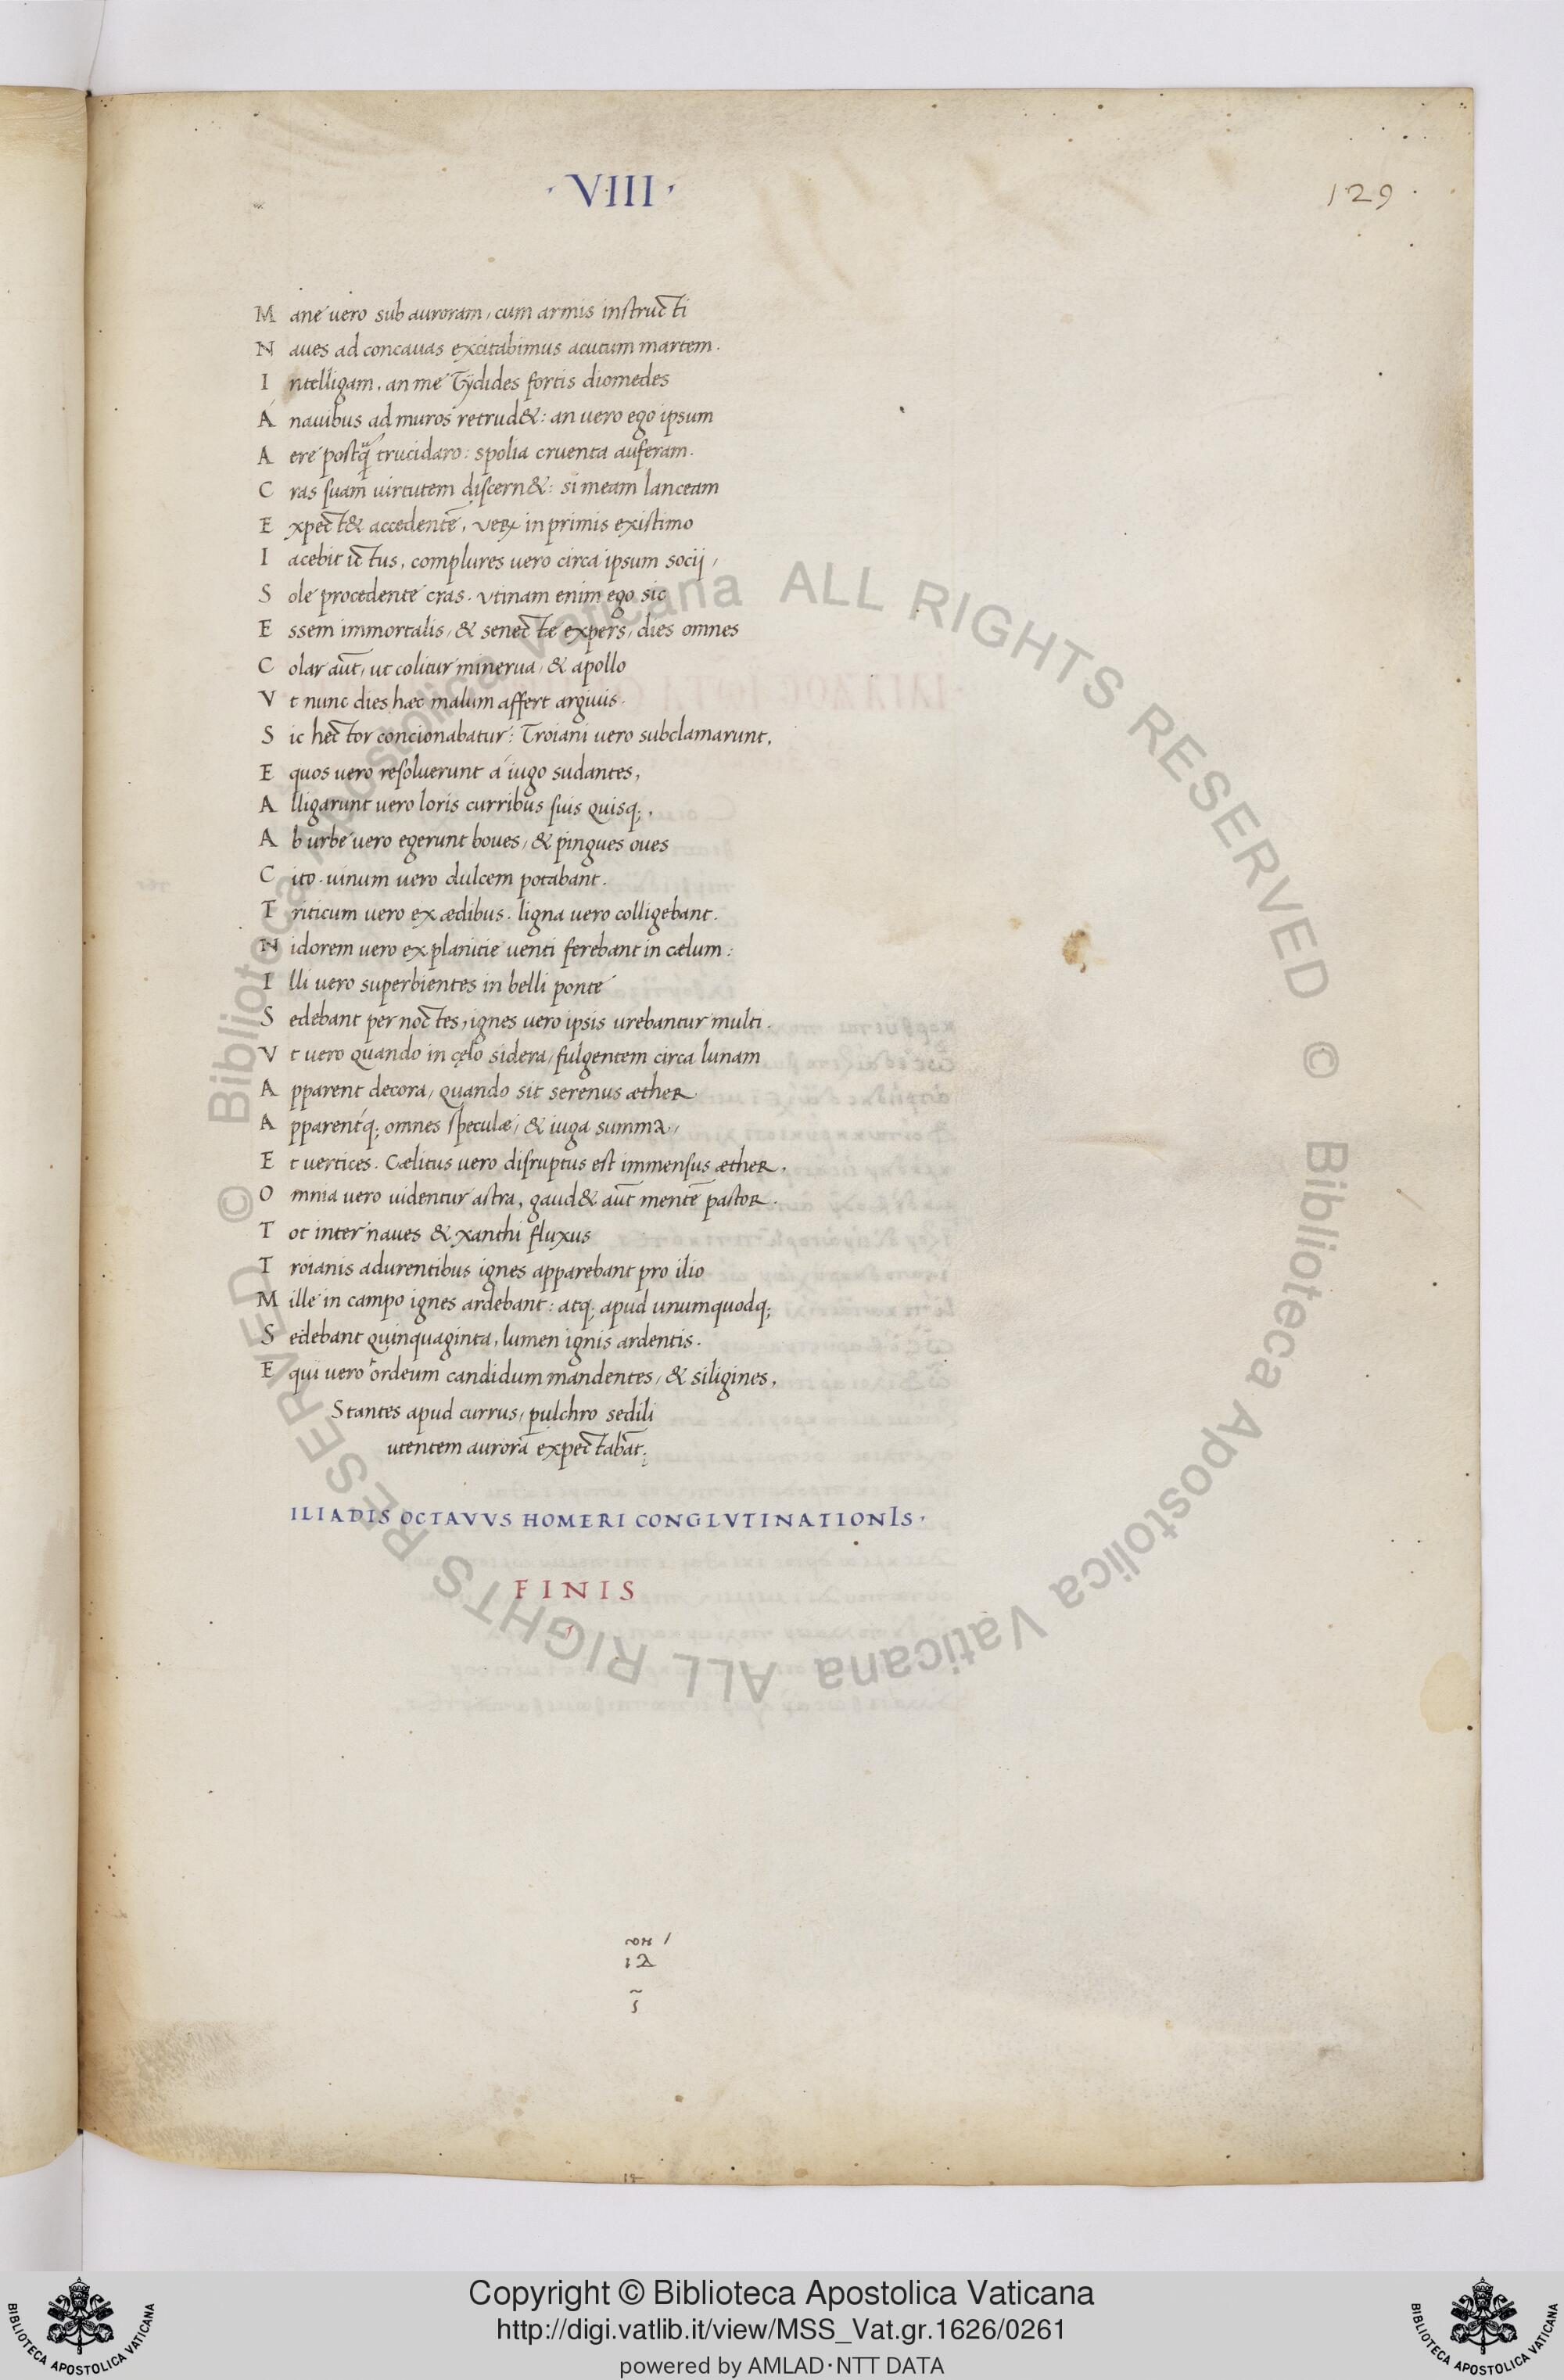 · VIII ·
129 ·
Mane vero sub auroram, cum armis instructi
Naues ad concauas excitabimus acutum martem.
Intelligam, an me Tÿdides fortis diomedes
A nauibus ad muros retrud&: an vero ego ipsum
Aere postq̃ trucidaro: spolia cruenta auferam.
Cras suam uirtutem discern&: si meam lanceam
Expect& accedentē, in primis existimo
Iacebit ictus, complures uero circa ipsum socij,
Sole procedente cras. vtinam enim ego sic
Essem immortalis, & senectæ expers, dies omnes
Colar aut̄, ut colitur minerua, & apollo
Vt nunc dies hæc malum affert argiuis.
Sic hector concionabatur: Troiani uero subclamarunt,
Equos uero resoluerunt a iugo sudantes,
Alligarunt uero loris curribus suis quisq;,
Ab urbe uero egerunt boues, & pingues oues
Cito. uinum uero dulcem potabant.
Triticum uero ex ædibus. ligna uero colligebant.
Nidorem uero ex planitie uenti ferebant in cælum:
Illi uero superbientes in belli ponte
Sedebant per noctes, ignes uero ipsis urebantur multi.
Vt uero quando in cęlo sidera, fulgentem circa lunam
Apparent decora, quando sit serenus æther
Apparentq; omnes speculæ, & iuga summa,
Et uertices. Cælitus uero disruptus est immensus æther.
Omnia uero uidentur astra, gaud& aut̄ mentē pastor.
Tot inter naues & xanthi fluxus
Troianis adurentibus ignes apparebant pro ilio
Mille in campo ignes ardebant: atq; apud unumquodq;
Sedebant quinquaginta, lumen ignis ardentis.
Equi uero ordeum candidum mandentes, & siligines,
Stantes apud currus, pulchro sedili
utentem aurorā expectabāt;
ILIADIS OCTAVVS HOMERI CONGLVTINATIONIS ·
FINIS
© Biblioteca Apostolica Vaticana ALL RIGHTS RESERVED © Biblioteca Apostolica Vaticana ALL RIGHTS RESERVED
BIBLIOTECA APOSTOLICA VATICANA
Copyright © Biblioteca Apostolica Vaticana
http://digi.vatlib.it/view/MSS_Vat.gr.1626/0261
powered by AMLAD·NTT DATA
BIBLIOTECA APOSTOLICA VATICANA